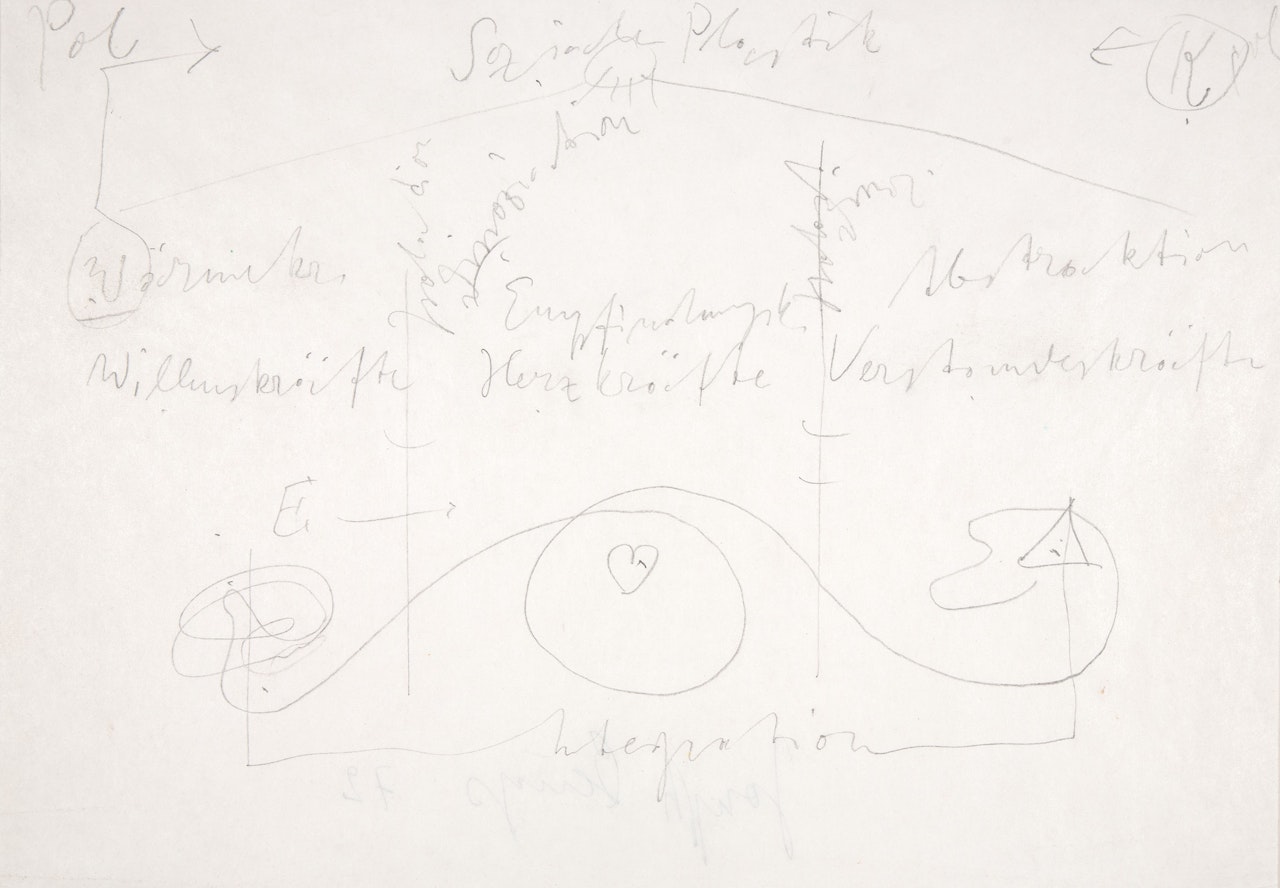 Pol Soziale Plastik K pol
Wärmekr. Empfindungsk. Abstraktion
Willenskräfte Herzkräfte Verstandeskräfte
E
Integration
Joseph Beuys 72